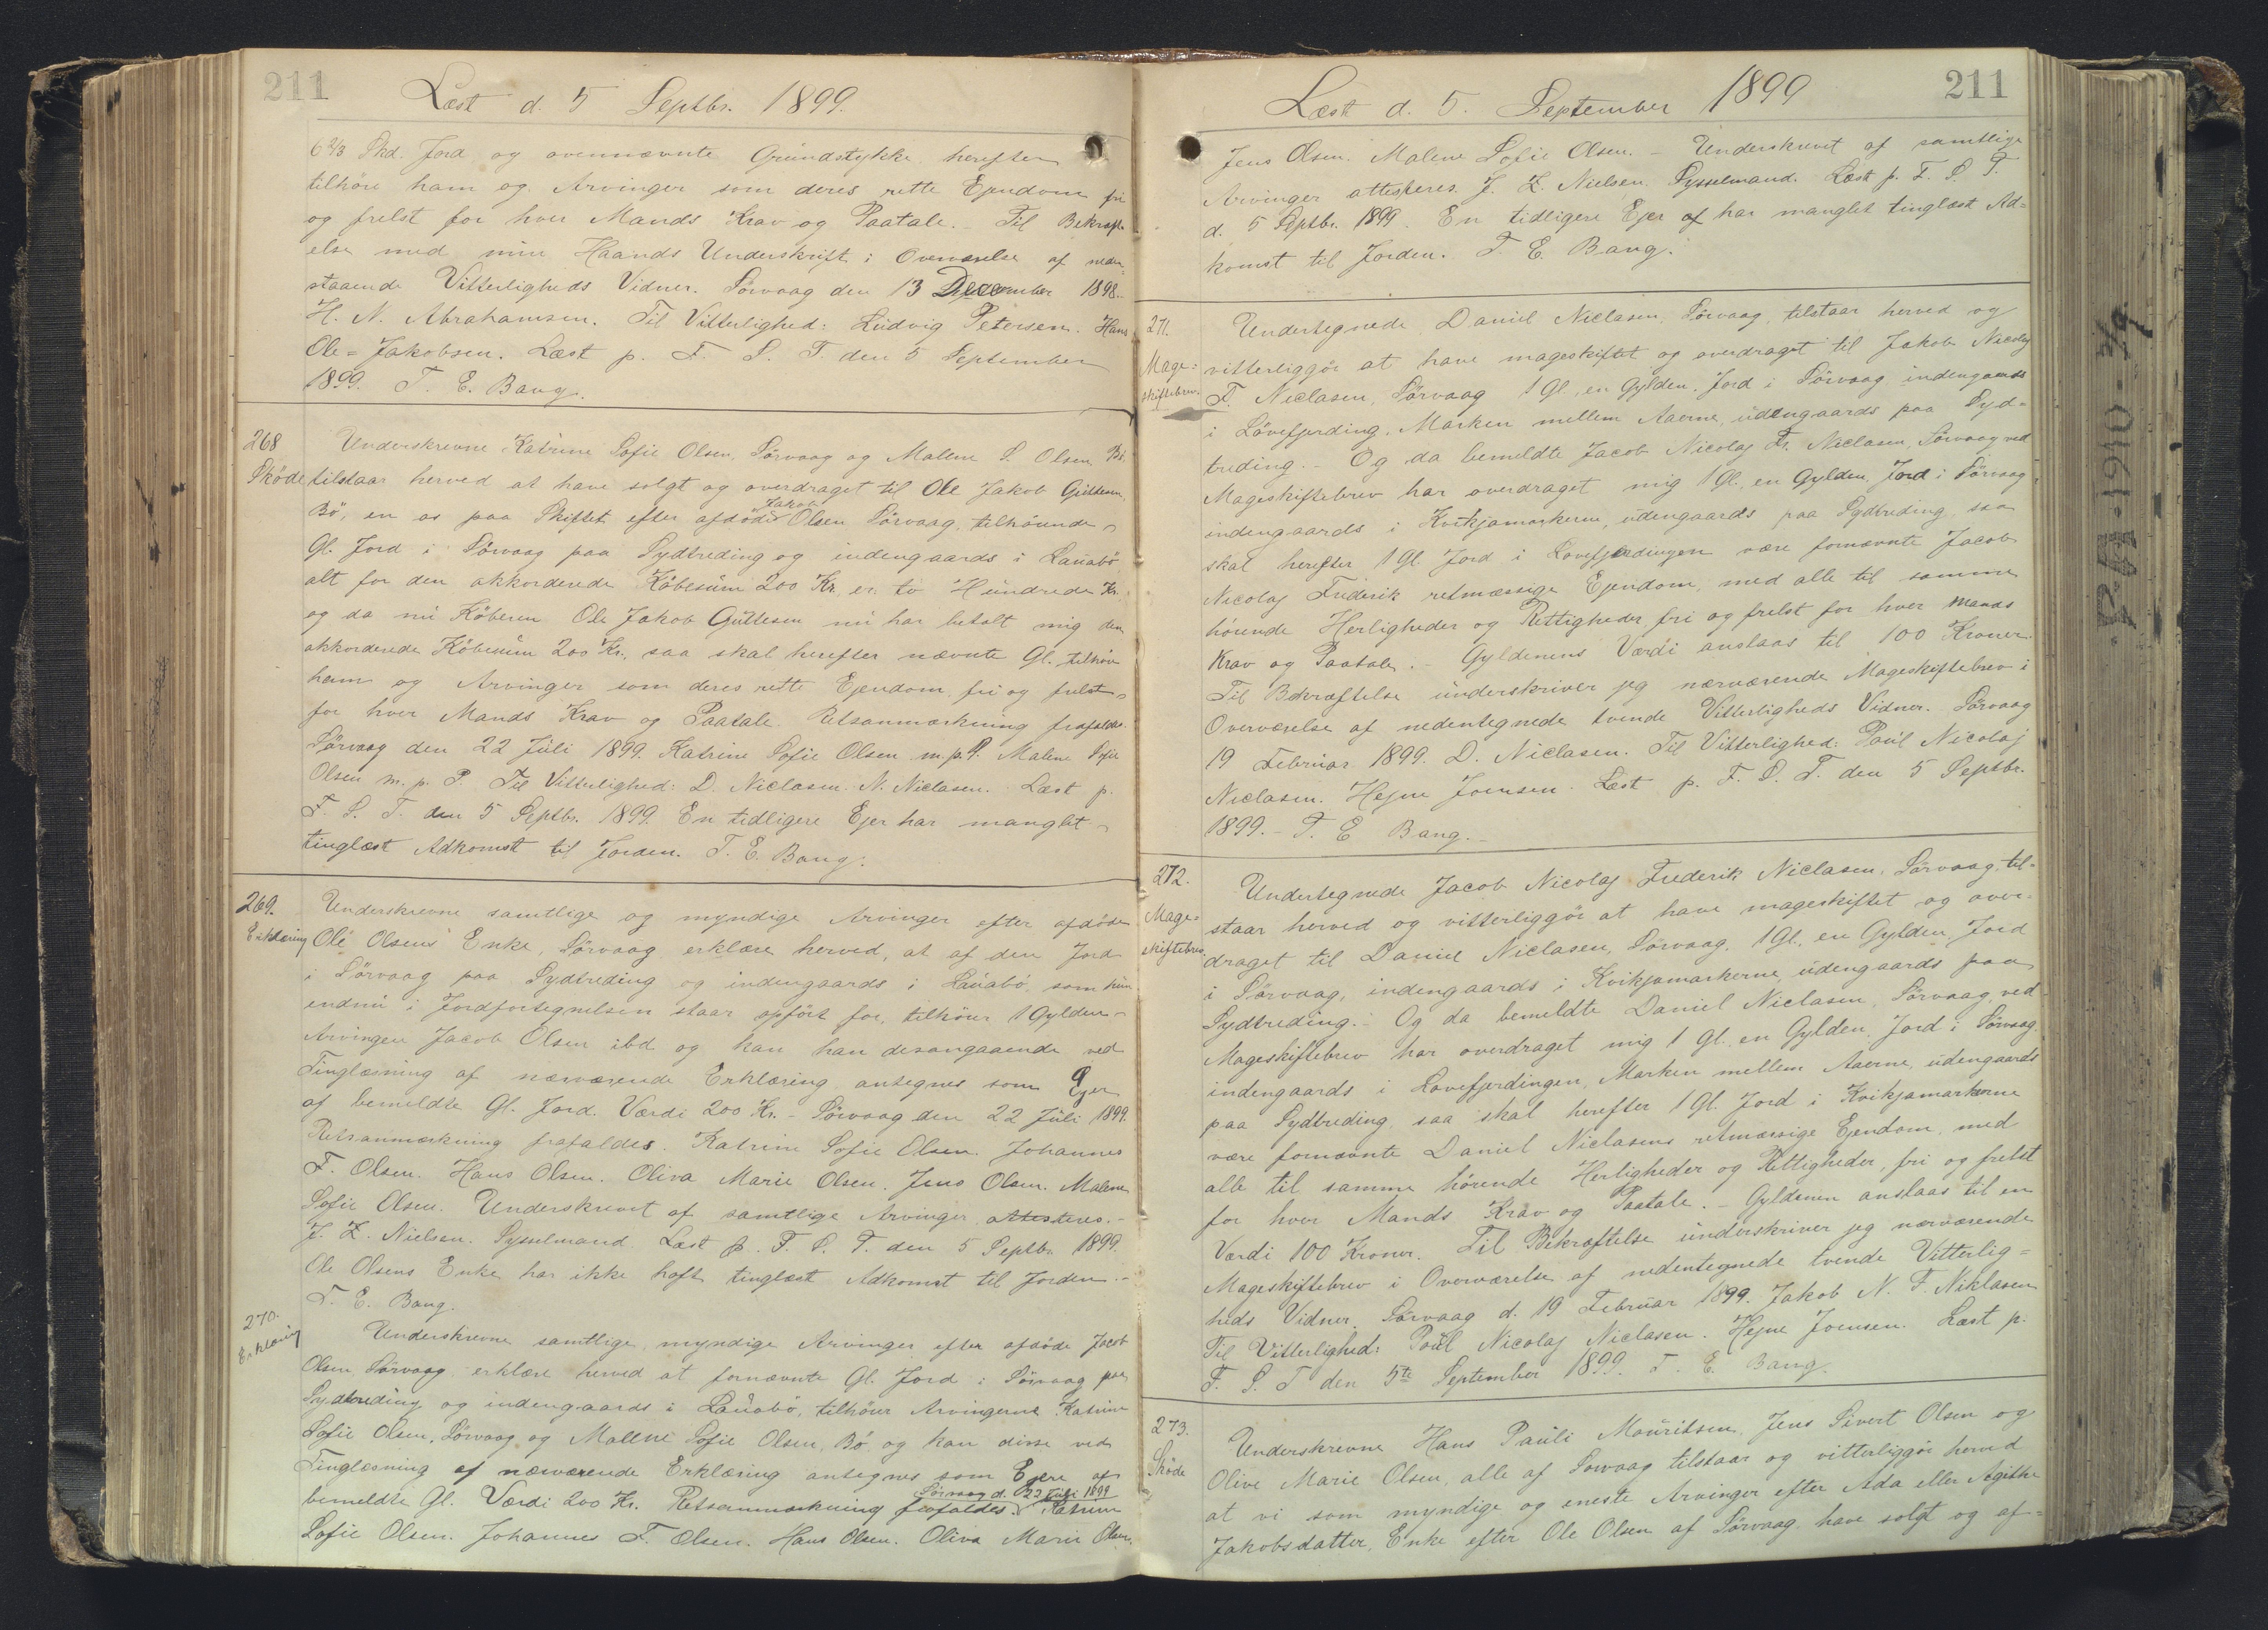 211
Læst d. 5 Septbr. 1899.
6 2/3 Skd. Jord og ovennævnte Grundstykke herefter
tilhöre ham og Arvinger som deres rette Ejendom fri
og frelst for hver Mands Krav og Paatale. Til Bekræft-
else med min Haands Underskrift i Overværelse af neden-
staaende Vitterligheds Vidner. Sörvaag den 13 December 1898.
H. N. Abrahamsen. Til Vitterlighed: Ludvig Petersen. Hans
Ole = Jakobsen. Læst p. F. S. T. den 5 September
1899. T. E. Bang.
268
Sköde
Underskrevne Katrine Sofie Olsen, Sörvaag og Malene S. Olsen Bö.
tilstaar herved at have solgt og overdraget til Ole Jakob Guttesen,
Bö, en os paa Skiftet efter afdöde Jakob Olsen Sörvaag, tilhörende
Gl. Jord i Sörvaag paa Sydtreding og indengaards i Lauabö
alt for den akkorderede Köbesum 200 Kr. er to Hundrede Kr.
og da nu Köberen Ole Jakob Guttesen nu har betalt mig den
akkorderede Köbesum 200 Kr. saa skal herefter nævnte Gl. tilhöre
ham og Arvinger som deres rette Ejendom fri og frelst
for hver Mands Krav og Paatale. Retsanmærkning frafaldes.
Sörvaag den 22 Juli 1899. Katrine Sofie Olsen m.p.P. Malene Sofie
Olsen m. p. P. Til Vitterlighed: D. Niclasen. N. Niclasen. Læst p.
F. S. T. den 5 Septbr. 1899. En tidligere Ejer har manglet
tinglæst Adkomst til Jorden. T. E. Bang.
269.
Erklæring
Underskrevne samtlige og myndige Arvinger efter afdöde
Ole Olsens Enke, Sörvaag erklære herved, at af den Jord
i Sörvaag paa Sydtreding og indengaards i Lauabö, som hun
endnu i Jordfortegnelsen staar opfört for, tilhörer 1 Gylden
Arvingen Jacob Olsen ibd og kan han desangaaende ved
Tinglæsning af nærværende Erklæring antegnes som Ejer
af bemeldte Gl. Jord. Værdi 200 Kr. - Sörvaag den 22 Juli 1899.
Retsanmærkning frafaldes. Katrine Sofie Olsen. Johannes
F. Olsen. Hans Olsen. Oliva Marie Olsen. Jens Olsen. Malene
Sofie Olsen. Underskrevet af samtlige Arvinger attesteres. -
J. Z. Nielsen. Sysselmand. Læst p. F. S. T. den 5 Septbr. 1899.
Ole Olsens Enke har ikke haft tinglæst Adkomst til Jorden. -
T. E. Bang.
270.
Erklæring
Underskrevne samtlige myndige Arvinger efter afdöde Jacob
Olsen, Sörvaag erklære herved at fornævnte Gl. Jord i Sörvaag paa
Sydtreding og indengaards i Lauabö, tilhörer Arvingerne Katrine
Sofie Olsen, Sörvaag og Mallene Sofie Olsen, Bö, og kan disse ved
Tinglæsning af nærværende Erklæring antegnes som Ejere af
bemeldte Gl. Værdi 200 Kr. Retsanmærkning frafaldes. Sörvaag d. 22 Juli 1899 Katrine
Sofie Olsen. Johannes F. Olsen. Hans Olsen. Oliva Marie Olsen.
Læst d. 5. September 1899
211
Jens Olsen. Malene Sofie Olsen. - Underskrevet af samtlige
Arvinger attesteres. J. Z. Nielsen. Sysselmand. Læst p. F. S. T.
d. 5 Septbr. 1899. En tidligere Ejer af har manglet tinglæst Ad=
komst til Jorden. T. E. Bang.
271.
Mage=
skiftebrev.
Undertegnede Daniel Niclasen, Sörvaag, tilstaar herved og
vitterliggör at have mageskiftet og overdraget til Jakob Nicolaj
F. Niclasen, Sörvaag 1 Gl., en Gylden, Jord i Sörvaag indengaards
i Lövefjerding, Marken mellem Aaerne, udengaards paa Syd=
treding. - Og da bemeldte Jacob Nicolaj Fr. Niclasen, Sörvaag ved
Mageskiftebrev har overdraget mig 1 Gl. en Gylden, Jord i Sörvaag
indengaards i Kvikjamarkerne, udengaards paa Sydtreding, saa
skal herefter 1 Gl. Jord i Lovefjerdingen være fornævnte Jacob
Nicolaj Frederik retmæssige Ejendom, med alle til samme
hörende Herligheder og Rettigheder fri og frelst for hver Mands
Krav og Paatale. - Gyldenens Værdi anslaas til 100 Kroner.
Til Bekræftelse underskriver jeg nærværende Mageskiftebrev i
Overværelse af nedentegnede tvende Vitterligheds Vidner. Sörvaag
19 Februar 1899. D. Niclasen. Til Vitterlighed: Poul Nicolaj
Niclasen. Hejne Joensen. Læst p. F. S. T. den 5 Septbr.
1899. - T. E Bang. -
272.
Mage=
skiftebrev.
Undertegnede Jacob Nicolaj Frederik Niclasen, Sörvaag, til=
staar herved og vitterliggör at have mageskiftet og over-
draget til Daniel Niclasen, Sörvaag, 1 Gl., en Gylden, Jord
i Sörvaag, indengaards i Kvikjamarkerne, udengaards paa
Sydtreding. - Og da bemeldte Daniel Niclasen, Sörvaag, ved
Mageskiftebrev har overdraget mig 1 Gl. en Gylden, Jord i Sörvaag
indengaards i Lovefjerdingen, Marken mellem Aaerne, udengaards
paa Sydtreding, saa skal herefter 1 Gl. Jord i Kvikjamarkerne
være fornævnte Daniel Niclasens retmæssige Ejendom, med
alle til samme hörende Herligheder og Rettigheder, fri og frelst
for hver Mands Krav og Paatale. - Gyldenen anslaas til en
Værdi 100 Kroner. Til Bekræftelse underskriver jeg nærværende
Mageskiftebrev i Overværelse af nedentegnede tvende Vitterlig=
heds Vidner. Sörvaag d. 19 Februar 1899. Jakob N. F. Niklasen
Til Vitterlighed: Poul Nicolaj Niclasen. Hejne Joensen. Læst p.
F. S. T den 5te September 1899. T. E. Bang.
273.
Sköde
Underskrevne Hans Pauli Mouritsen, Jens Sivert Olsen og
Olive Marie Olsen, alle af Sörvaag tilstaar og vitterliggör herved
at vi som myndige og eneste Arvinger efter Ada eller Agithe
Jakobsdatter, Enke efter Ole Olsen af Sörvaag have solgt og af=